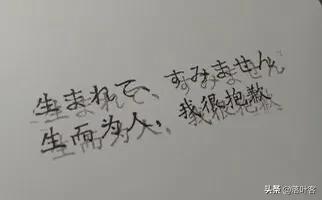 生まれて、すみません
生而为人，我很抱歉
头条 @落叶客